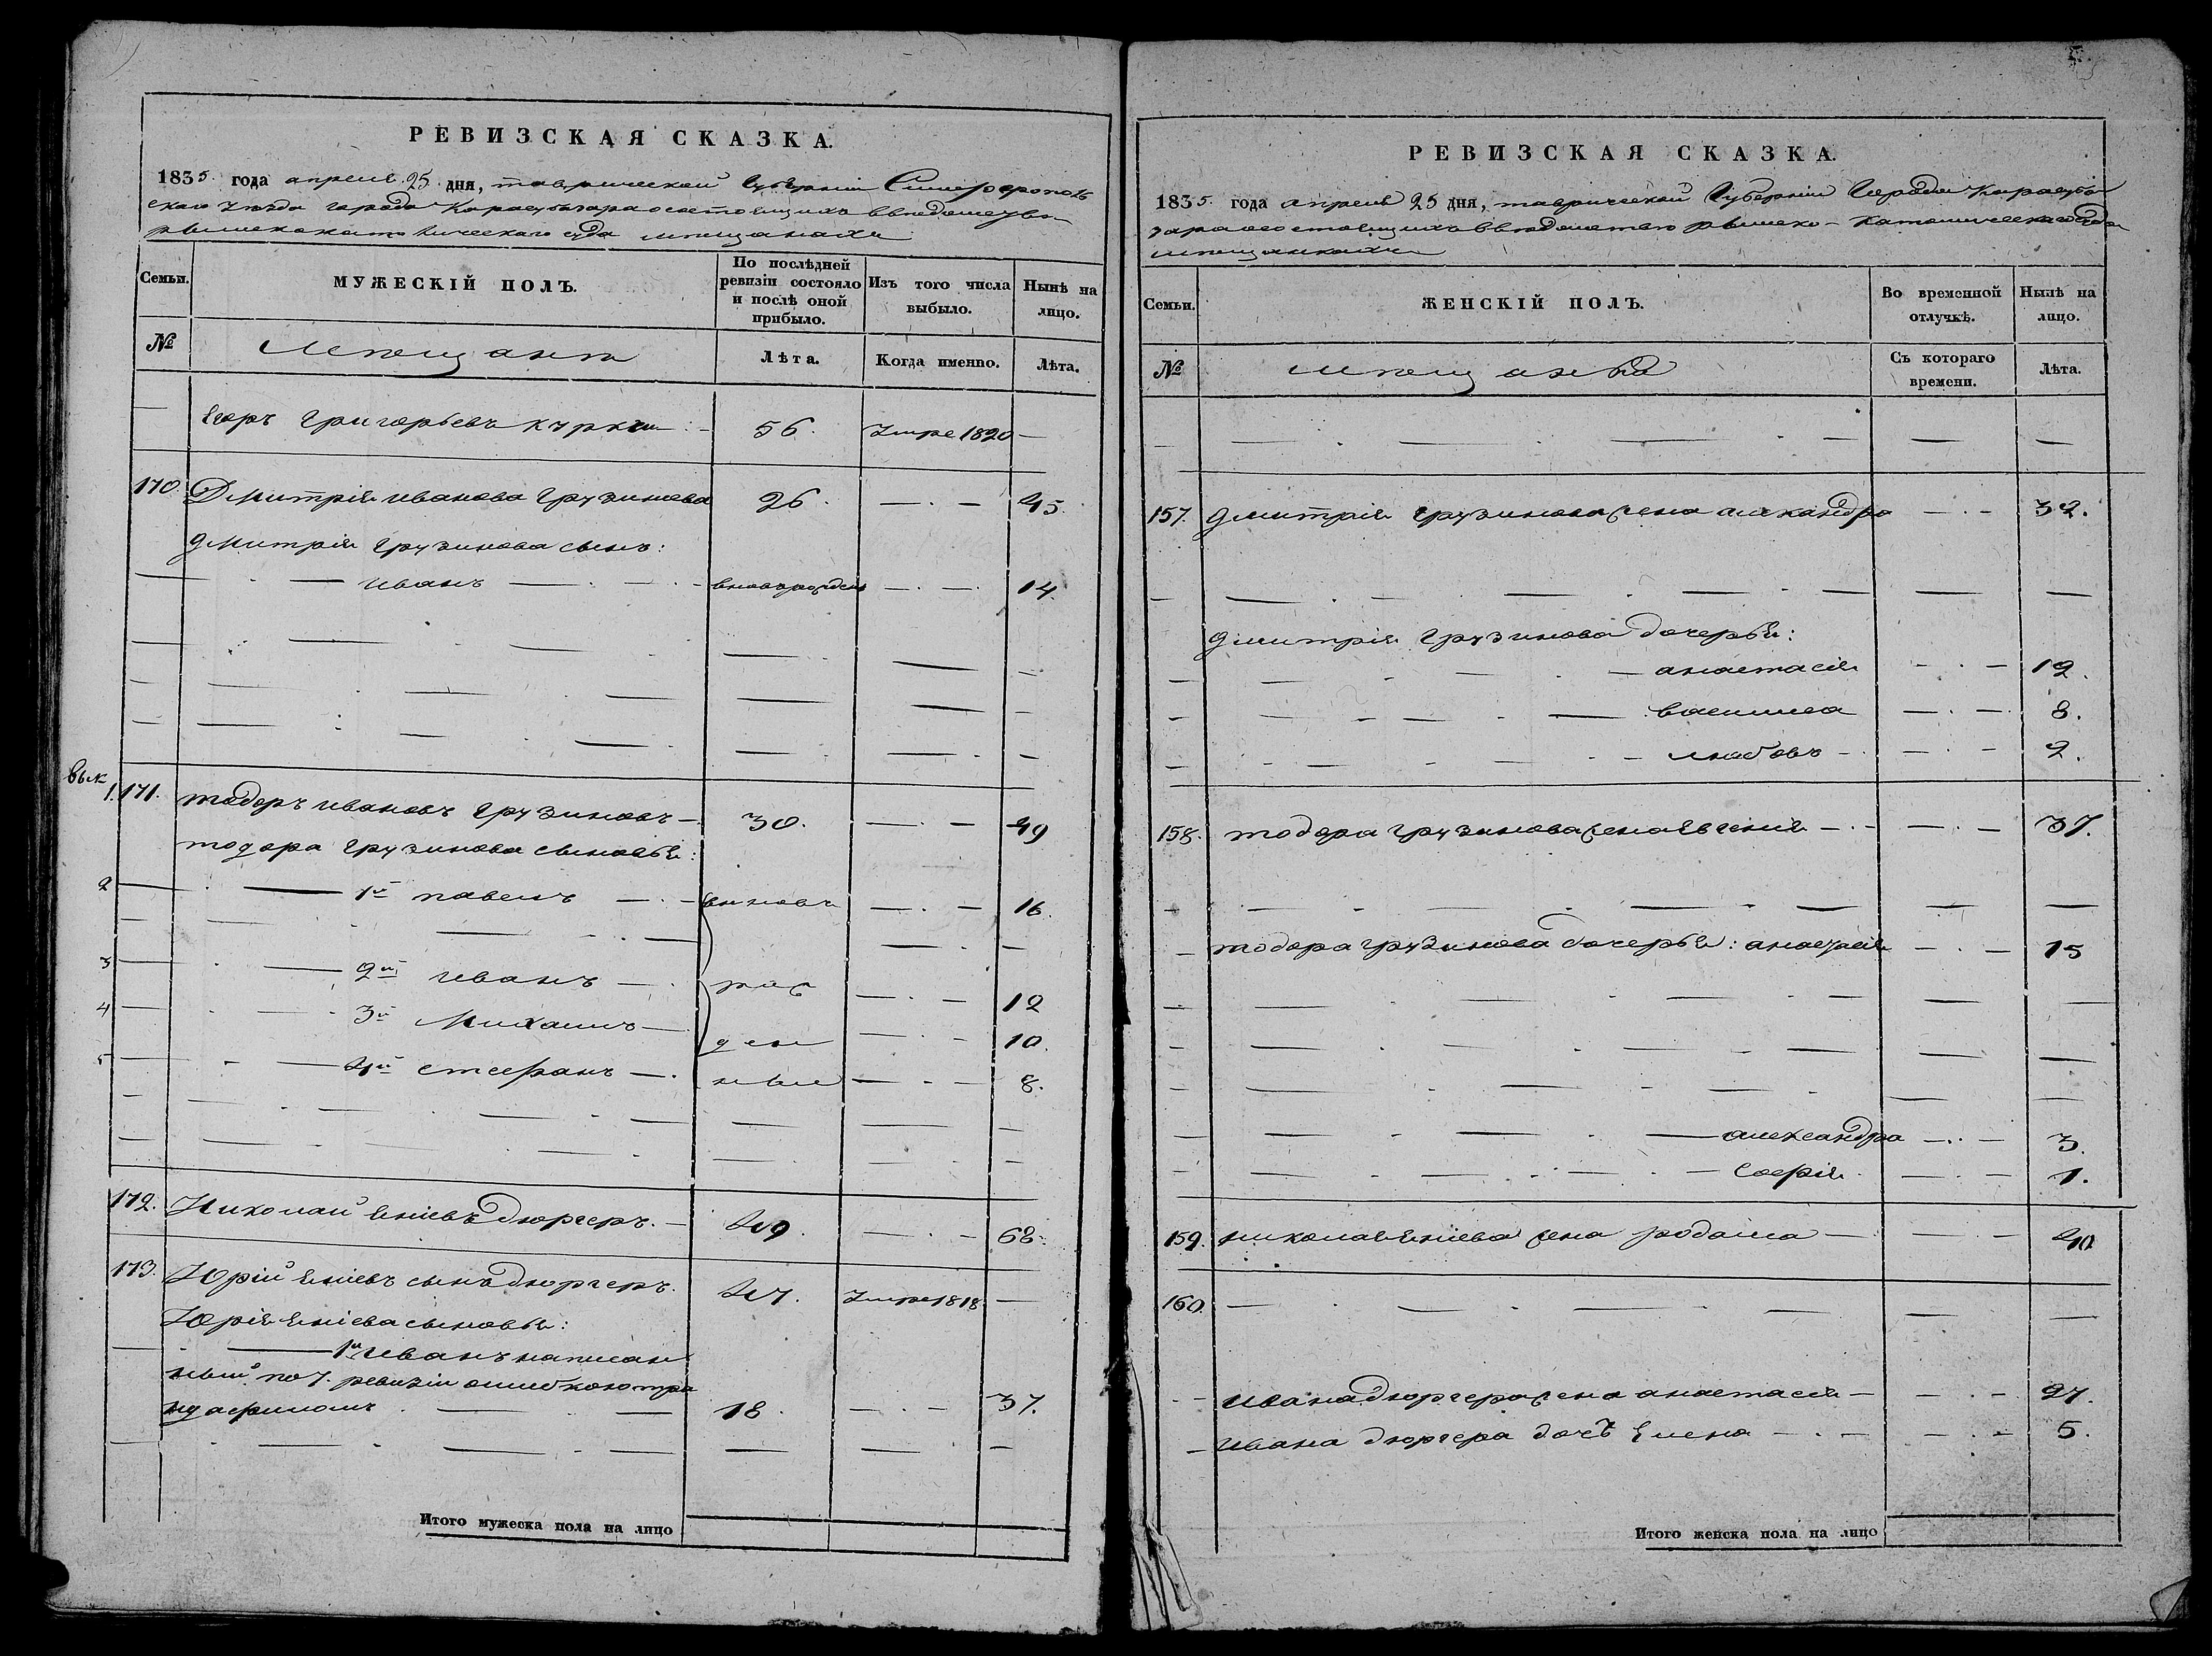 РЕВИЗСКАЯ СКАЗКА.
1835 года апреля 25 дня, таврической Губерніи Симферополь
скаго уезда города Карасубазара о состоящихъ в ведомстве
римскокатолического суда мещанахъ
Семьи. МУЖЕСКІЙ ПОЛЪ. По послѣдней ревизіи состояло и послѣ оной прибыло. Изъ того числа выбыло. Нынѣ на лицо.
№ Мещане Лѣта. Когда именно. Лѣта.
— Егоръ Григорьевъ 56. Умре 1820 —
170. Дмитрія Иванова Грузинова 26. — 45.
Дмитрія Грузинова сынъ:
— Иванъ — вновьрожденъ — 14.
Вык
1. 171. Тодоръ Ивановъ Грузиновъ — 30. — 49
Тодора Грузинова сыновья:
2 — 1й Павелъ — вновь — 16.
3 — 2й Иванъ — рож — 12
4 — 3й Михаилъ — ден — 10.
5 — 4й Стефанъ — ные — 8.
172. Николай Еніевъ Дюргеръ. — 49. — 68.
173. Юрій Еніевъ сынъ Дюргеръ. 47. Умре 1818. —
Юрія Еніева сыновья:
— 1й Иванъ написан
ный по 7. ревизіи ошибкою тра
ндафиломъ — 18. — 37.
Итого мужеска пола на лицо
РЕВИЗСКАЯ СКАЗКА.
1835. года апреля 25 дня, таврической Губерніи Города Карасуба
зара о состоящихъ в ведомстве римско-католическаго суда
мещанкахъ
Семьи. ЖЕНСКІЙ ПОЛЪ. Во временной отлучкѣ. Нынѣ на лицо.
№ Мещанка Съ котораго времени. Лѣта.
157. Дмитрія Грузинова жена Александра — 32.
Дмитрія Грузинова дочерья:
— Анастасія — 12.
— Василиса — 8.
— Любовь — 2.
158. Тодора Грузинова жена Евгенія — 37.
— Тодора Грузинова дочерья: Анастасія — 15
— Александра — 3.
— Софія — 1.
159. Николая Еніева жена — 40
160. —
— Ивана Дюргера жена Анастасія — 27.
— Ивана Дюргера дочь Елена — 5.
Итого женска пола на лицо